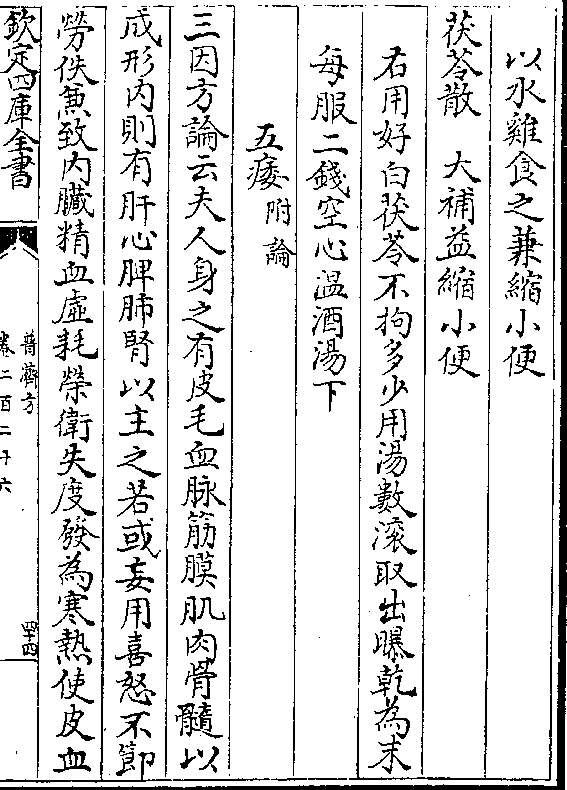 以水雞食之兼縮小便
茯苓散　大補益縮小便
右用好白茯苓不拘多少用湯數滚取出曝乾為末
每服二錢空心溫酒湯下
五痿附論
三因方論云夫人身之有皮毛血脉筋膜肌肉骨髓以
成形内則有肝心脾肺腎以主之若或妄用喜怒不節
勞佚兼致内臟精血虛耗榮衛失度發為寒熱使皮血
欽定四庫全書
普濟方
卷二百二十六
四十四